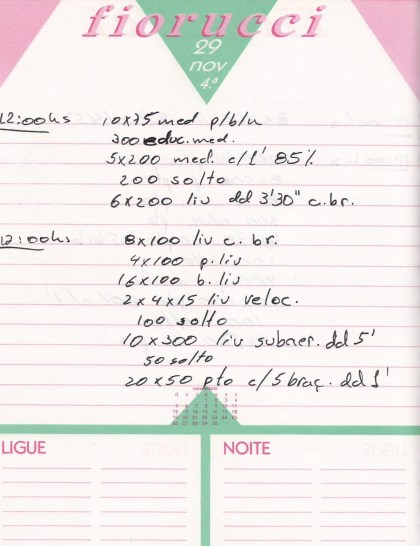 fiorucci
29
nov
4.ª
12:00hs 10x75 med p/b/n
300 educ. med.
5x200 med. c/1' 85%
200 solto
6x200 liv dd 3'30" c.br.
12:00hs 8x100 liv c. br.
4x100 p. liv
16x100 b. liv
2x4x15 liv veloc.
100 solto
10x300 liv subaer. dd 5'
50 solto
20x50 pto c/5 braç. dd 1'
LIGUE
NOITE